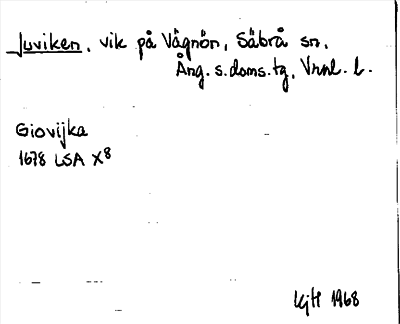 Juviken, vik på Vågnön, Säbrå sn,
Ång. s. doms. tg, Vnnl. l.
Giovijka
1678 LSA X8
KjH 1968